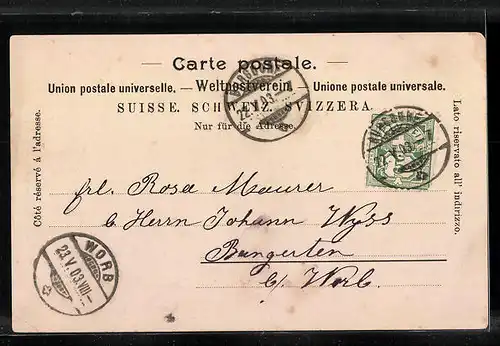 Carte postale.
Union postale universelle. — Weltpostverein. — Unione postale universale.
SUISSE. SCHWEIZ. SVIZZERA.
Nur für die Adresse.
Côté réservé à l'adresse.
Lato riservato all' indirizzo.
frl. Rosa Maurer
b. Herrn Johann Wyss
Bangerten
b/ Worb.
WORB
23.V.03.VIII.—
22.V.03